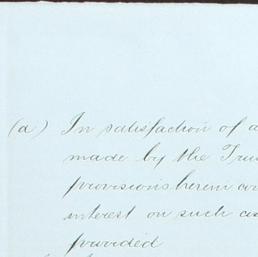 (a) In satisfaction of
made by the
provisions herein
interest on such
provided